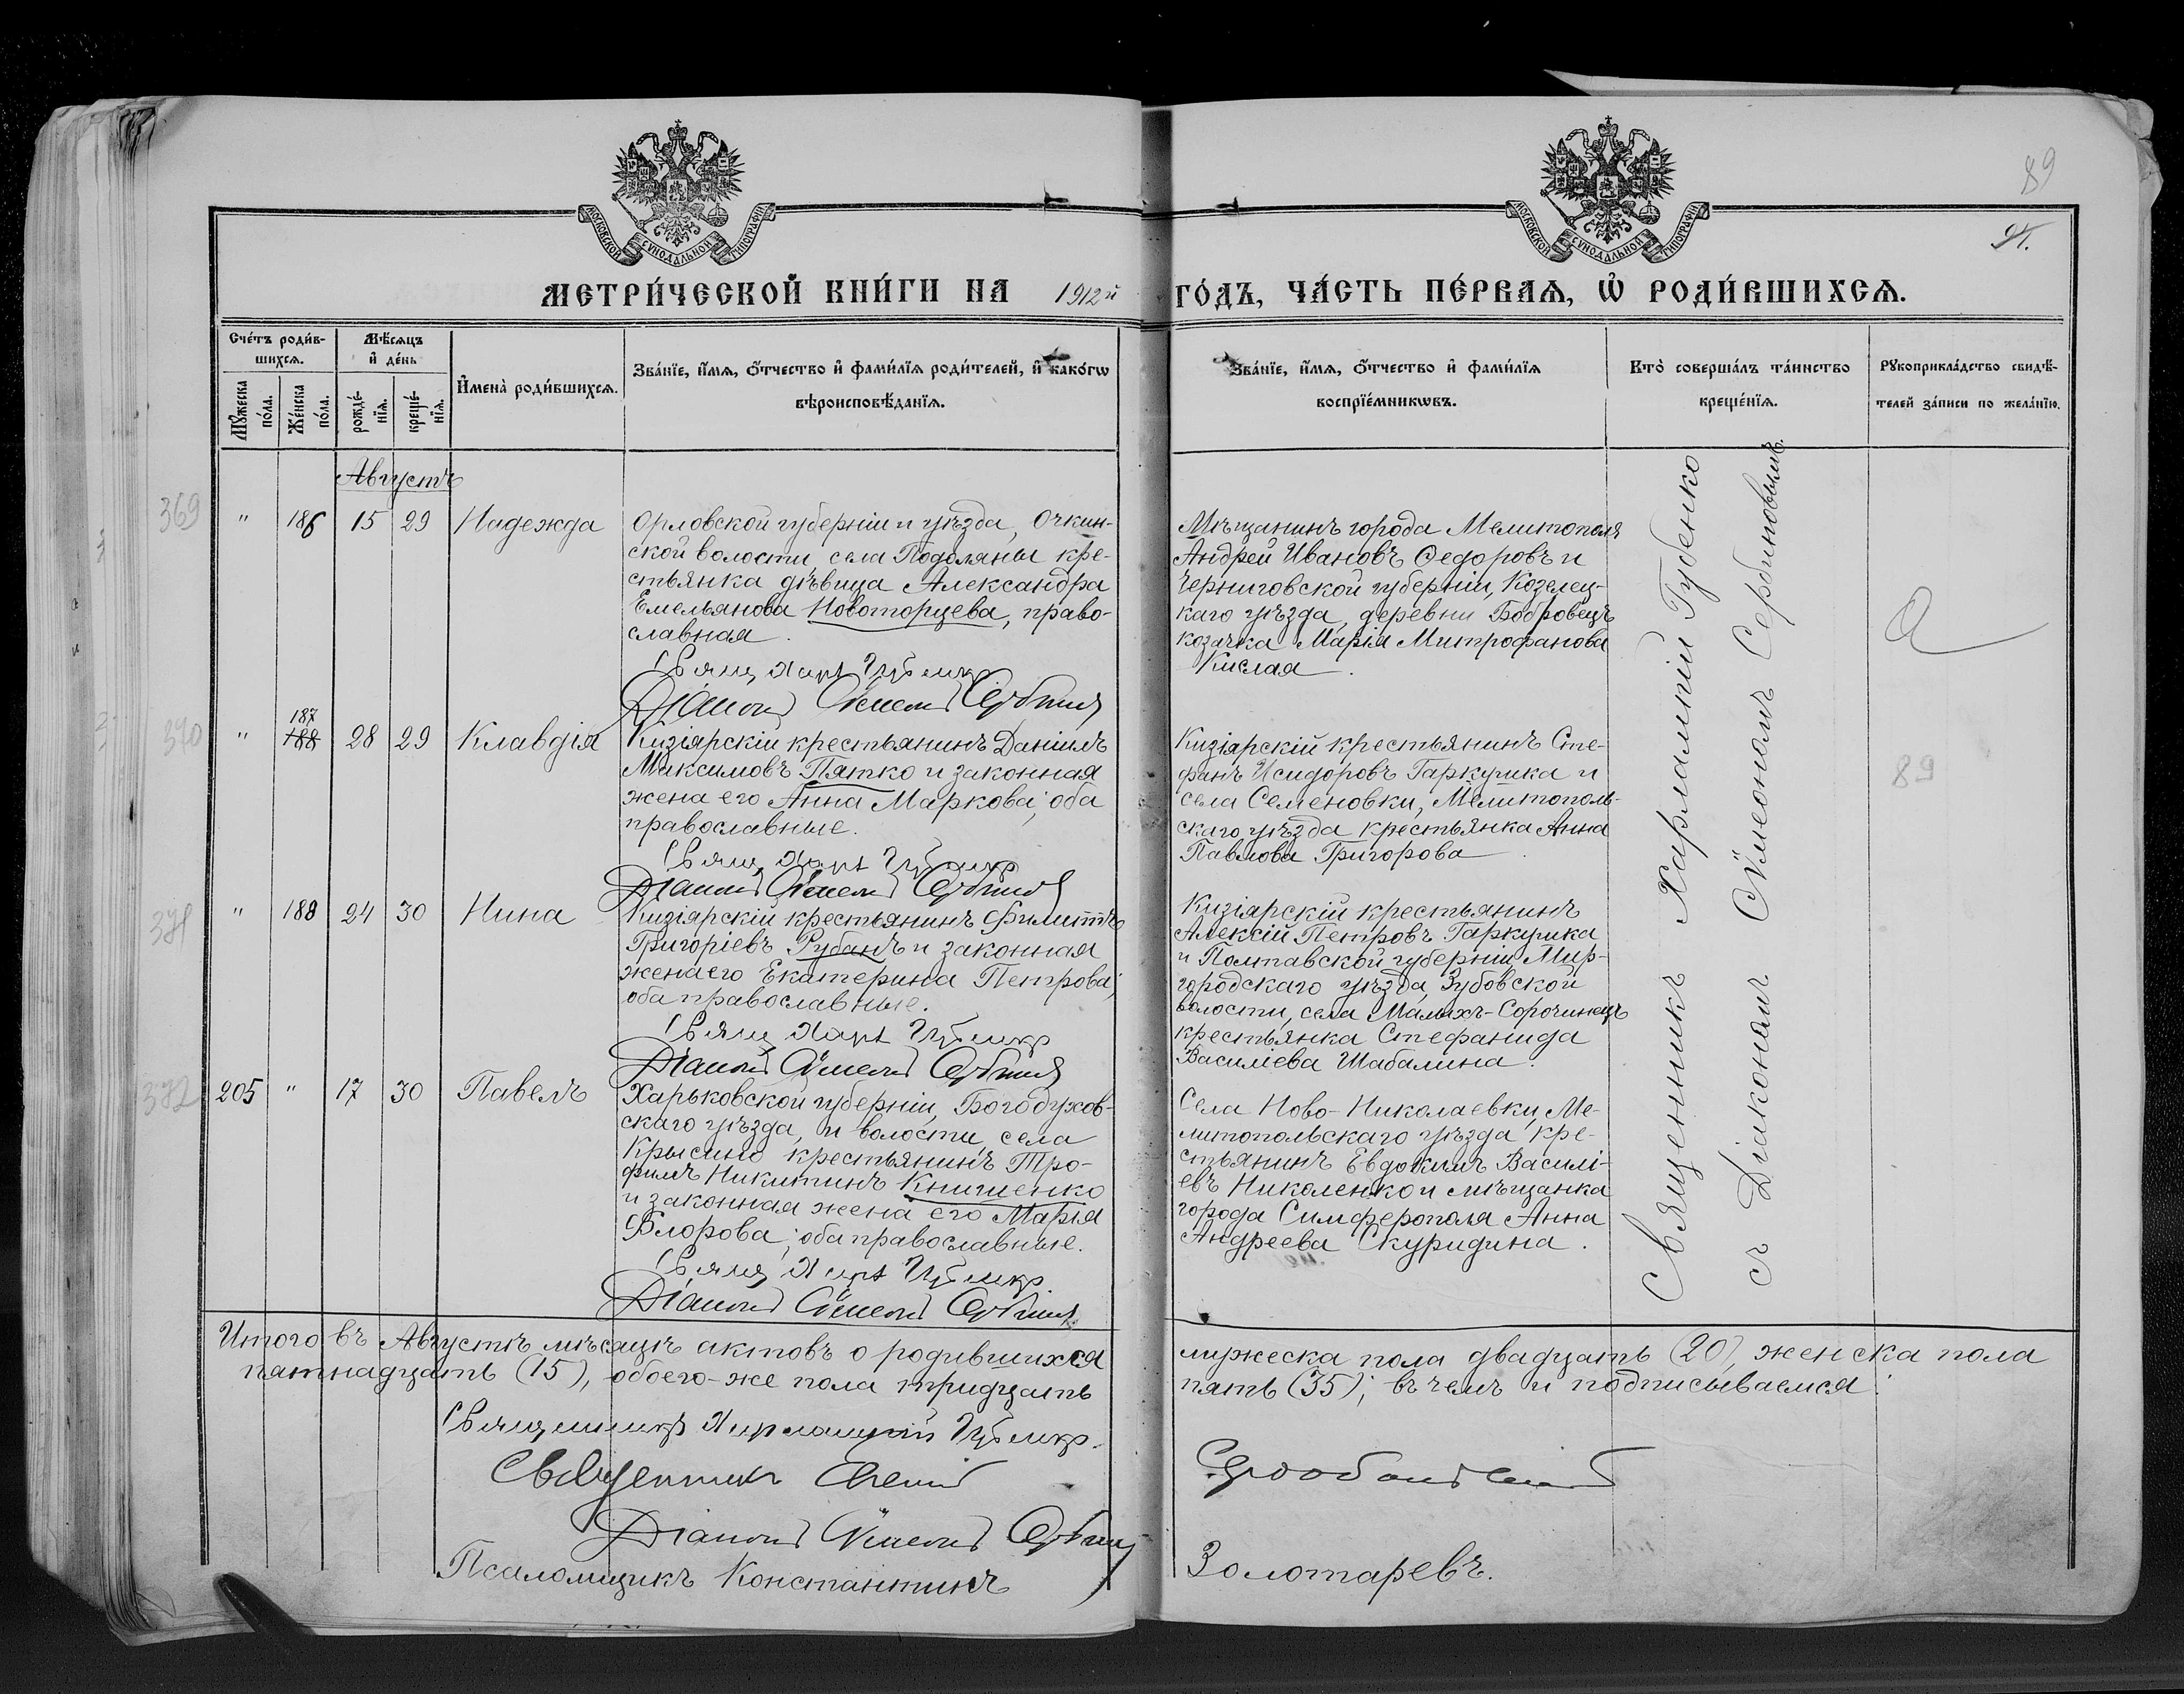 89
91.
МОСКОВСКОЙ СУНОДАЛЬНОЙ ТИПОГРАФІИ
МОСКОВСКОЙ СУНОДАЛЬНОЙ ТИПОГРАФІИ
МЕТРИ́ЧЕСКОЙ КНИ́ГИ НА 1912й
ГО́ДЪ, ЧА́СТЬ ПЕ́РВАЯ, Ѡ҆ РОДИ́ВШИХСЯ.
Сче́тъ роди́в-
шихся.
Му́жеска по́ла.
Же́нска по́ла.
Мѣ́сяцъ
и҆ де́нь
рожде́-
нїя.
креще́-
нїя.
И҆мена̀ роди́вшихся.
Зва́нїе, и҆́мя, ѻ҆́тчество и҆ фами́лїя роди́телей, и҆ како́гѡ
вѣроисповѣ́данїя.
Зва́нїе, и҆́мя, ѻ҆́тчество и҆ фами́лїя
воспрїе́мникѡвъ.
Кто̀ соверша́лъ та́инство
креще́нїя.
Рꙋкоприкла́дство свидѣ́-
телей за́писи по жела́нїю.
Августъ
369
" 186 15 29 Надежда
Орловской губерніи и уѣзда, Очкин-
ской волости села Подоляны кре-
стьянка дѣвица Александра
Емельянова Новоторцева, право-
славная.
Свящ. Харл. Губенко
Діаконъ Сѵмеонъ Сербинов
Мѣщанинъ города Мелитополя
Андрей Ивановъ Ѳедоровъ и
Черниговской губерніи, Козелец-
каго уѣзда, деревни Бобровецъ
козачка Марія Митрофанова
Кислая.
370
187
" 188 28 29 Клавдія
Кизіярскій крестьянинъ Даніилъ
Максимовъ Пятко и законная
жена его Анна Маркова; оба
православные.
Свящ. Харл. Губенко
Діаконъ Сѵмеонъ Сербинов
Кизіярскій крестьянинъ Сте-
фанъ Исидоровъ Гаркуша и
села Семеновки, Мелитополь-
скаго уѣзда крестьянка Анна
Павлова Григорова.
89
371
" 188 24 30 Нина
Кизіярскій крестьянинъ Филиппъ
Григоріевъ Рубанъ и законная
жена его Екатерина Петрова;
оба православные.
Свящ. Харл. Губенко
Діаконъ Сѵмеонъ Сербинов
Кизіярскій крестьянинъ
Алексій Петровъ Гаркуша
и Полтавской губерніи Мир-
городскаго уѣзда, Зубовской
волости, села Малыхъ-Сорочинецъ
крестьянка Стефанида
Василіева Шабалина.
372
205 " 17 30 Павелъ
Харьковской губерніи, Богодухов-
скаго уѣзда, и волости, села
Крысино крестьянинъ Тро-
фимъ Никитинъ Книшенко
и законная жена его Марія
Флорова; оба православные.
Свящ. Харл. Губенко
Діаконъ Сѵмеонъ Сербинов
Села Ново-Николаевки, Ме-
литопольскаго уѣзда кре-
стьянинъ Евдокимъ Василі-
евъ Николенко и мѣщанка
города Симферополя Анна
Андреева Скуридина.
Священникъ Харлампій Губенко
съ Діакономъ Сѵмеономъ Сербиновымъ.
Итого въ Августѣ мѣсяцѣ актовъ о родившихся
мужеска пола двадцать (20), женска пола
пятнадцать (15), обоего-же пола тридцать
пять (35); въ чемъ и подписываемся:
Священникъ Харлампій Губенко.
Священникъ
Діаконъ Сѵмеонъ Сербинов
Псаломщикъ Константинъ
Золотаревъ.